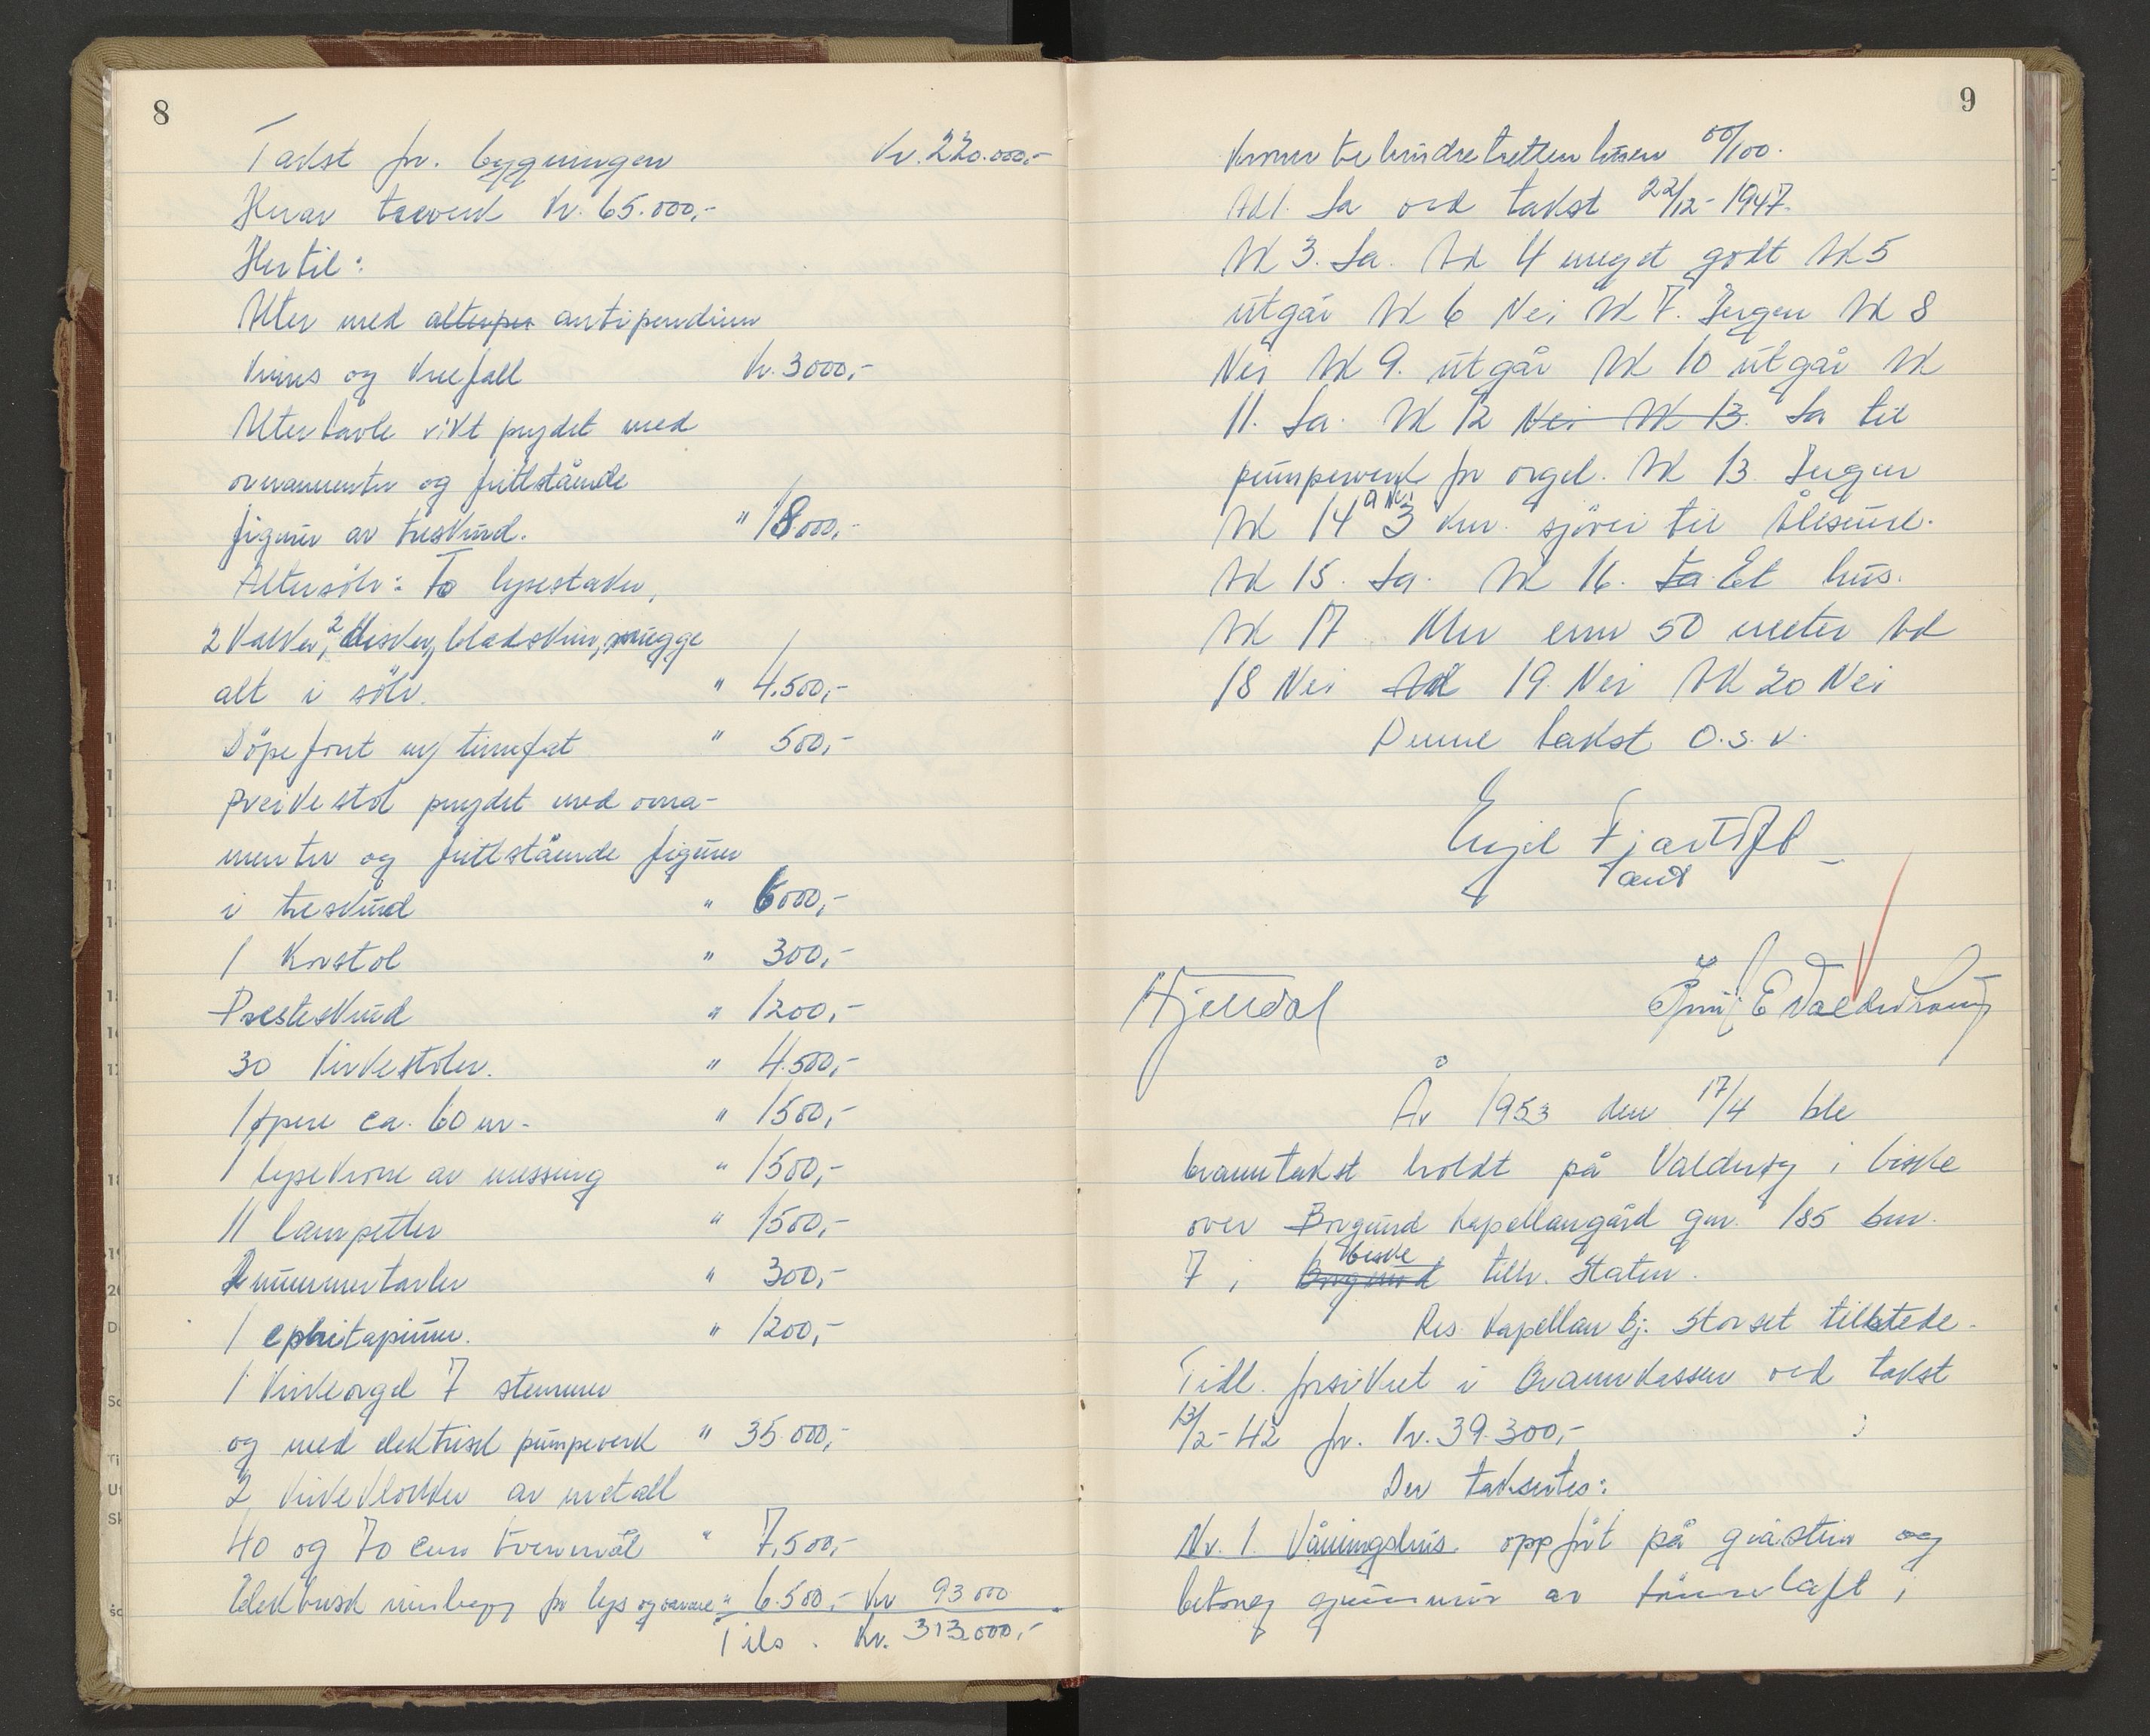 8
Takst for bygningen Kr. 220.000,-
Herav treverk Kr. 65.000,-
Hertil:
Alter med alterper antipendium
Krus og knefall Kr. 3000,-
Altertavle rikt prydet med
ornamenter og frittstående
figurer av treskurd. " 18000,-
Altersølv: To lysestaker,
2 kalker, 2 disker, blødskrin, mugge
alt i sølv. " 4.500,-
Döpefont m/ tinnfat " 500,-
Preikestol prydet med orna-
menter og frittstående figurer
i treskurd " 6000,-
1 Korstol " 300,-
Presteskrud " 1200,-
30 kirkestoler. " 4.500,-
1 löpere ca. 60 m. " 1500,-
1 lysekrone av messing " 1500,-
11 lampetter " 1500,-
2 nummertavler " 300,-
1 ephitapium. " 1200,-
1 kirkeorgel 7 stemmer
og med elektrisk pumpeverk " 35.000,-
2 kirkeklokker av metall
40 og 70 cm tverrmål " 7.500,-
Elektrisk innlegg for lys og varme " 6.500,- Kr 93000
Tils. Kr. 313.000,-
9
Kroner tre hundre tretten tusen 00/100.
Ad 1. Ja ved takst 22/12-1947.
Ad 3. Ja. Ad 4 meget godt Ad 5
utgår Ad 6 Nei Ad 7. Ingen Ad 8
Nei Ad 9. utgår Ad 10 utgår Ad
11. Ja. Ad 12 Nei Ad 13. Ja til
pumpeverk for orgel. Ad 13 Ingen
Ad 14 a Nei 3 km. sjövei til Ålesund.
Ad 15. Ja. Ad 16. Ja. Et hus.
Ad 17. Mer enn 50 meter Ad
18 Nei Ad 19. Nei Ad 20 Nei
Denne takst o.s.v.
Hjelldal
År 1953 den 17/4 ble
branntakst holdt på Valderøy i Giske
over Borgund kapellangård gnr. 185 bnr.
7 i Borgund Giske tilh. Staten.
Res. kapellan Bj. Storset tilstede.
Tidl. forsikret i Brannkassen ved takst
13/2-42 for Kr. 39.300,-
Der takseres:
Nr. 1. Våningshus. oppført på gråstein og
betong grunnmur av tømmer laft i